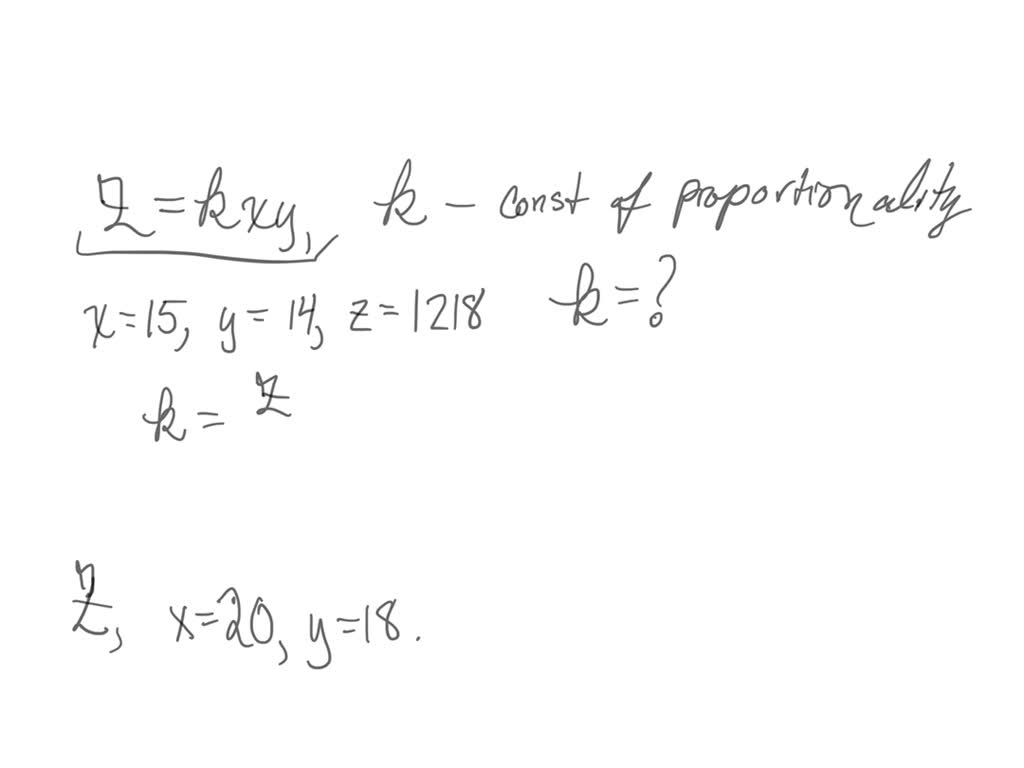 z = kxy, k - const of proportionality
x=15, y=14, z=1218 k=?
k = z
z, x=20, y=18.